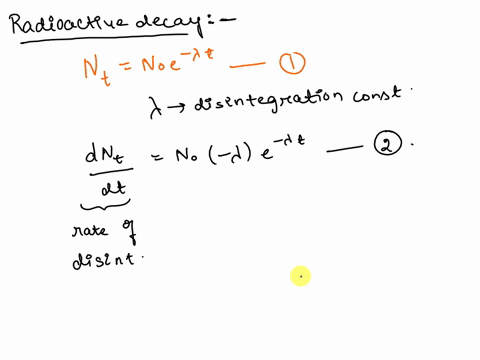 Radioactive decay:-
Nt = N0 e^-λt —— ①
λ → disintegration const.
dNt/dt = N0 (-λ) e^-λt —— ②.
rate of
disint.